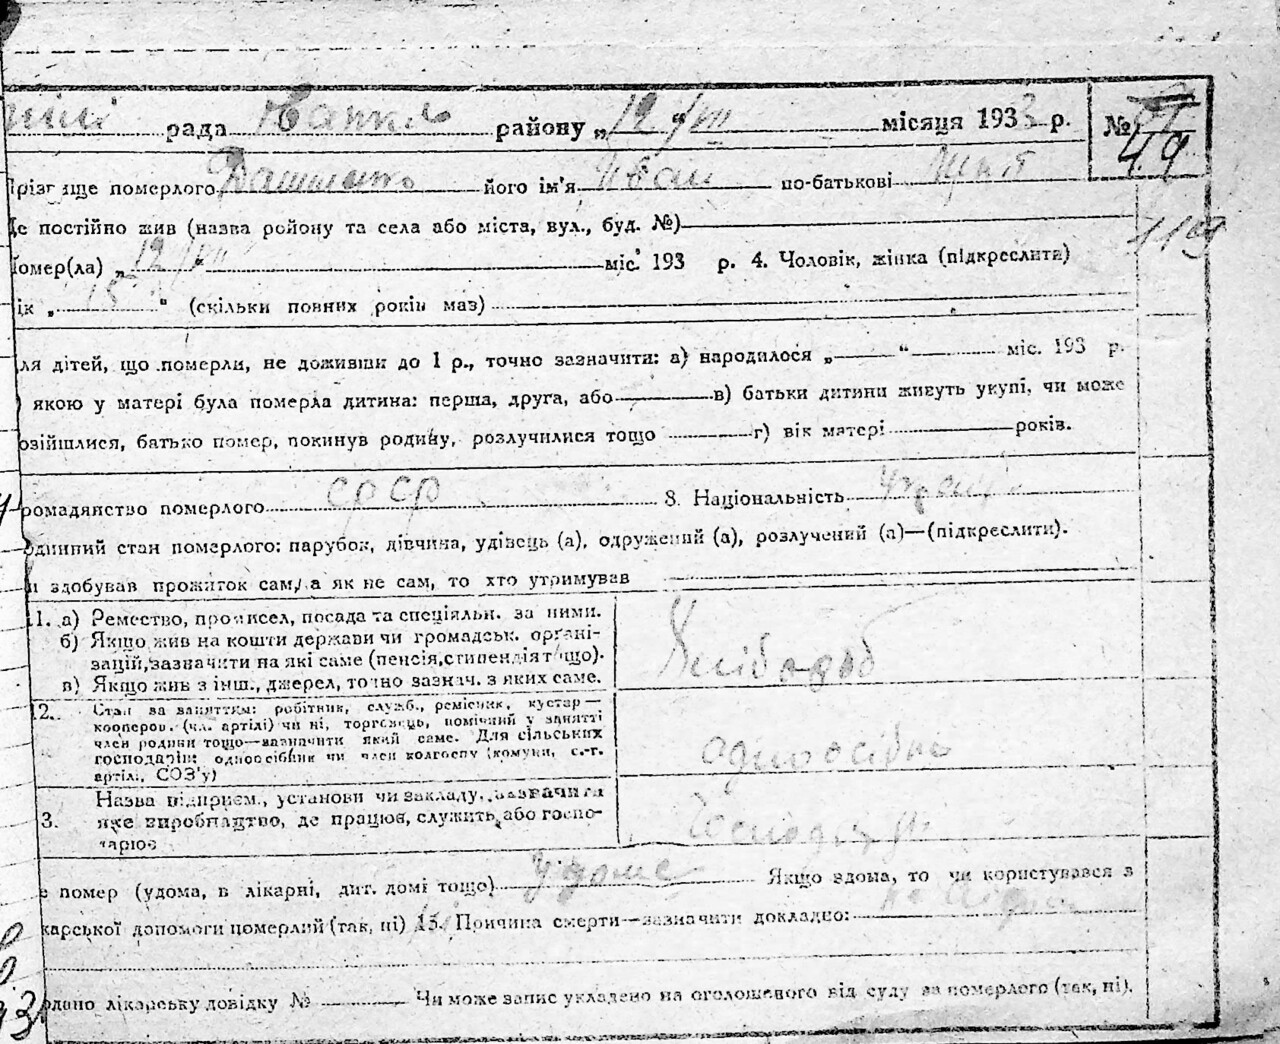 рада району „12 / VII місяця 1933 р. № 49
Прізвище померлого його ім'я Іван по-батькові
Де постійно жив (назва ройону та села або міста, вул., буд. №)
119
Помер(ла) „12 / VII “ міс. 193 р. 4. Чоловік, жінка (підкреслити)
ік „ 15 “ (скільки повних років має)
ля дітей, що померли, не доживши до 1 р., точно зазначити: а) народилося „ “ міс. 193 р.
якою у матері була померла дитина: перша, друга, або в) батьки дитини живуть укупі, чи може
озійшлися, батько помер, покинув родину, розлучилися тощо г) вік матері років.
ромадянство померлого СРСР 8. Національність
одинний стан померлого: парубок, дівчина, удівець (а), одружений (а), розлучений (а)—(підкреслити).
и здобував прожиток сам, а як не сам, то хто утримував
11. а) Ремество, промисел, посада та спеціяльн. за ними.
б) Якщо жив на кошти держави чи громадськ. органі-
зацій, зазначити на які саме (пенсія, стипендія тощо).
в) Якщо жив з інш., джерел, точно зазнач. з яких саме.
Хлібороб
2. Стан за заняттям: робітник, служб., ремісник, кустар—
кооперов. (чл. артілі) чи ні, торговець, помічний у занятті
член родини тощо—зазначити який саме. Для сільських
господарів: одноосібник чи член колгоспу (комуни, с.-г.
артілі, СОЗ'у)
одноосібне
3. Назва підприєм., установи чи закладу, зазначити
яке виробництво, де працює, служить або госпо-
дарює
е помер (удома, в лікарні, дит. домі тощо) удома Якщо вдома, то чи користувався з
карської допомоги померлий (так, ні) 15. Причина смерти—зазначити докладно:
одано лікарську довідку № Чи може запис укладено на оголошеного від суду за померлого (так, ні).